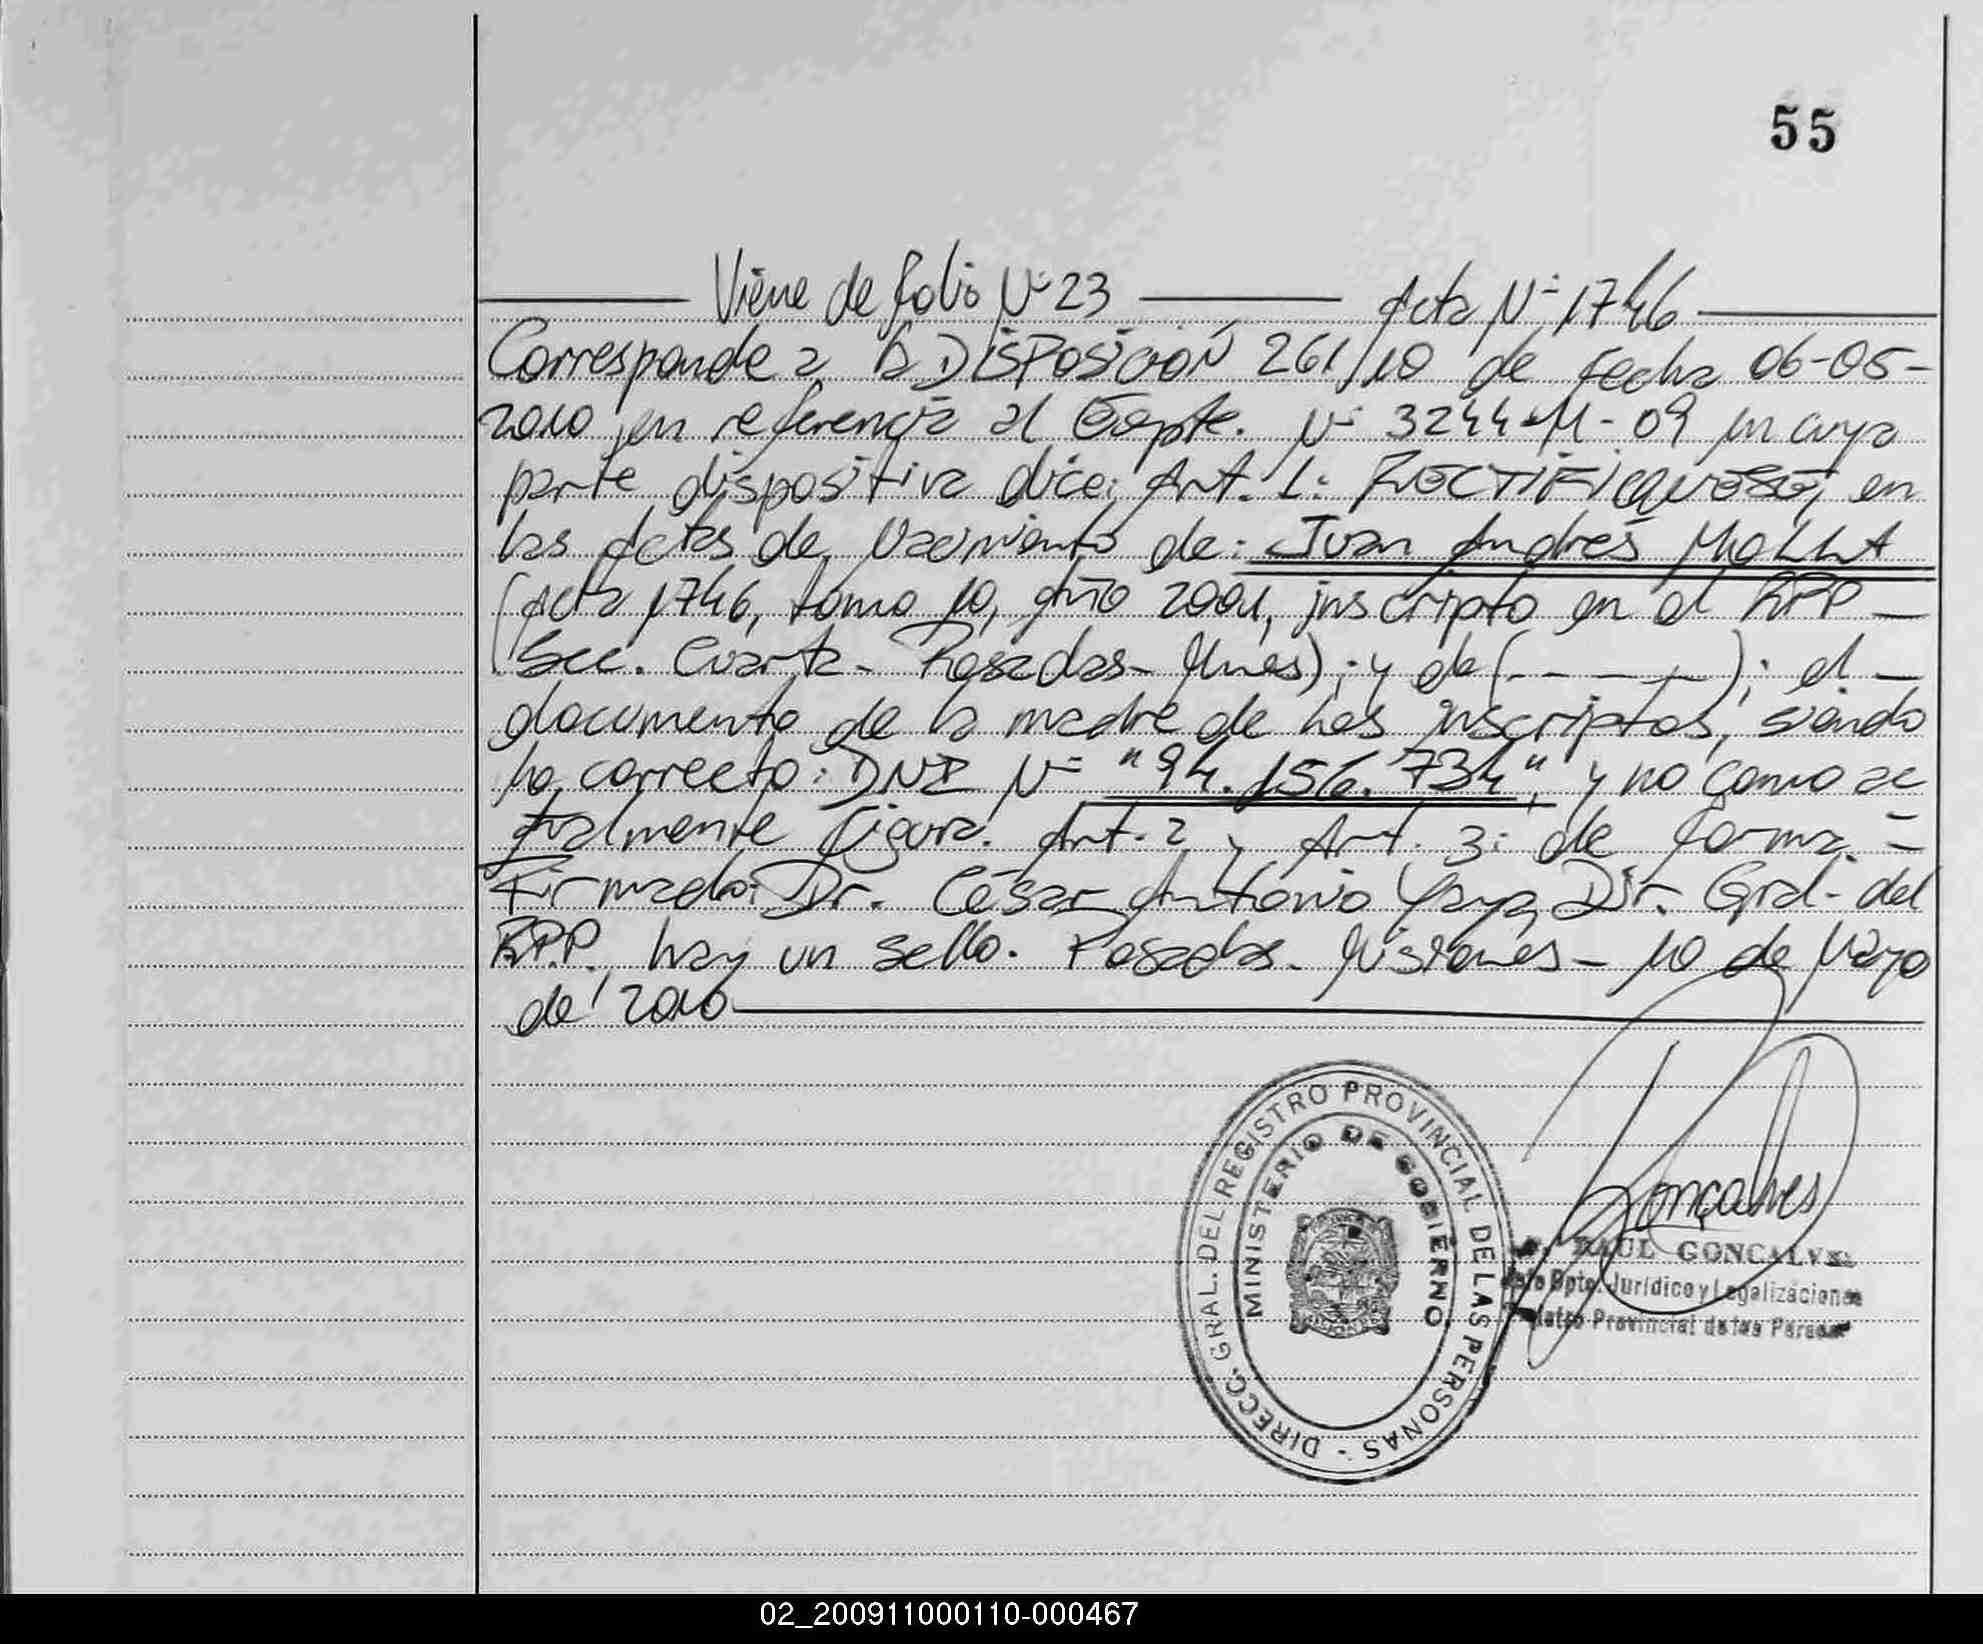 55
Viene de folio Nº 23 Acta Nº 1746
Corresponde a la DISPOSICIÓN 261/10 de fecha 06-05-
2010 en referencia al Expte. Nº 3244-M-09 en cuya
parte dispositiva dice: Art. 1: RECTIFIQUESE, en
las Actas de Nacimiento de: Juan Andrés MOLLA
(Acta 1746, tomo 10, año 2001, inscripto en el RPP -
Sec. Cuarta - Posadas - Mnes); y de (- - - - -); el -
documento de la madre de los inscriptos, siendo
lo correcto: DNI Nº "94.156.734", y no como ac
tualmente figura. Art. 2 y Art. 3: de forma. -
Firmado: Dr. César Antonio Yaya, Dir. Gral. del
R.P.P., hay un sello. Posadas - Misiones - 10 de Mayo
de 2010
DIRECC. GRAL. DEL REGISTRO PROVINCIAL DE LAS PERSONAS -
MINISTERIO DE GOBIERNO
Gonçalves
RAUL GONCALVES
Jefe Dpto. Jurídico y Legalizaciones
Registro Provincial de las Personas
02_200911000110-000467